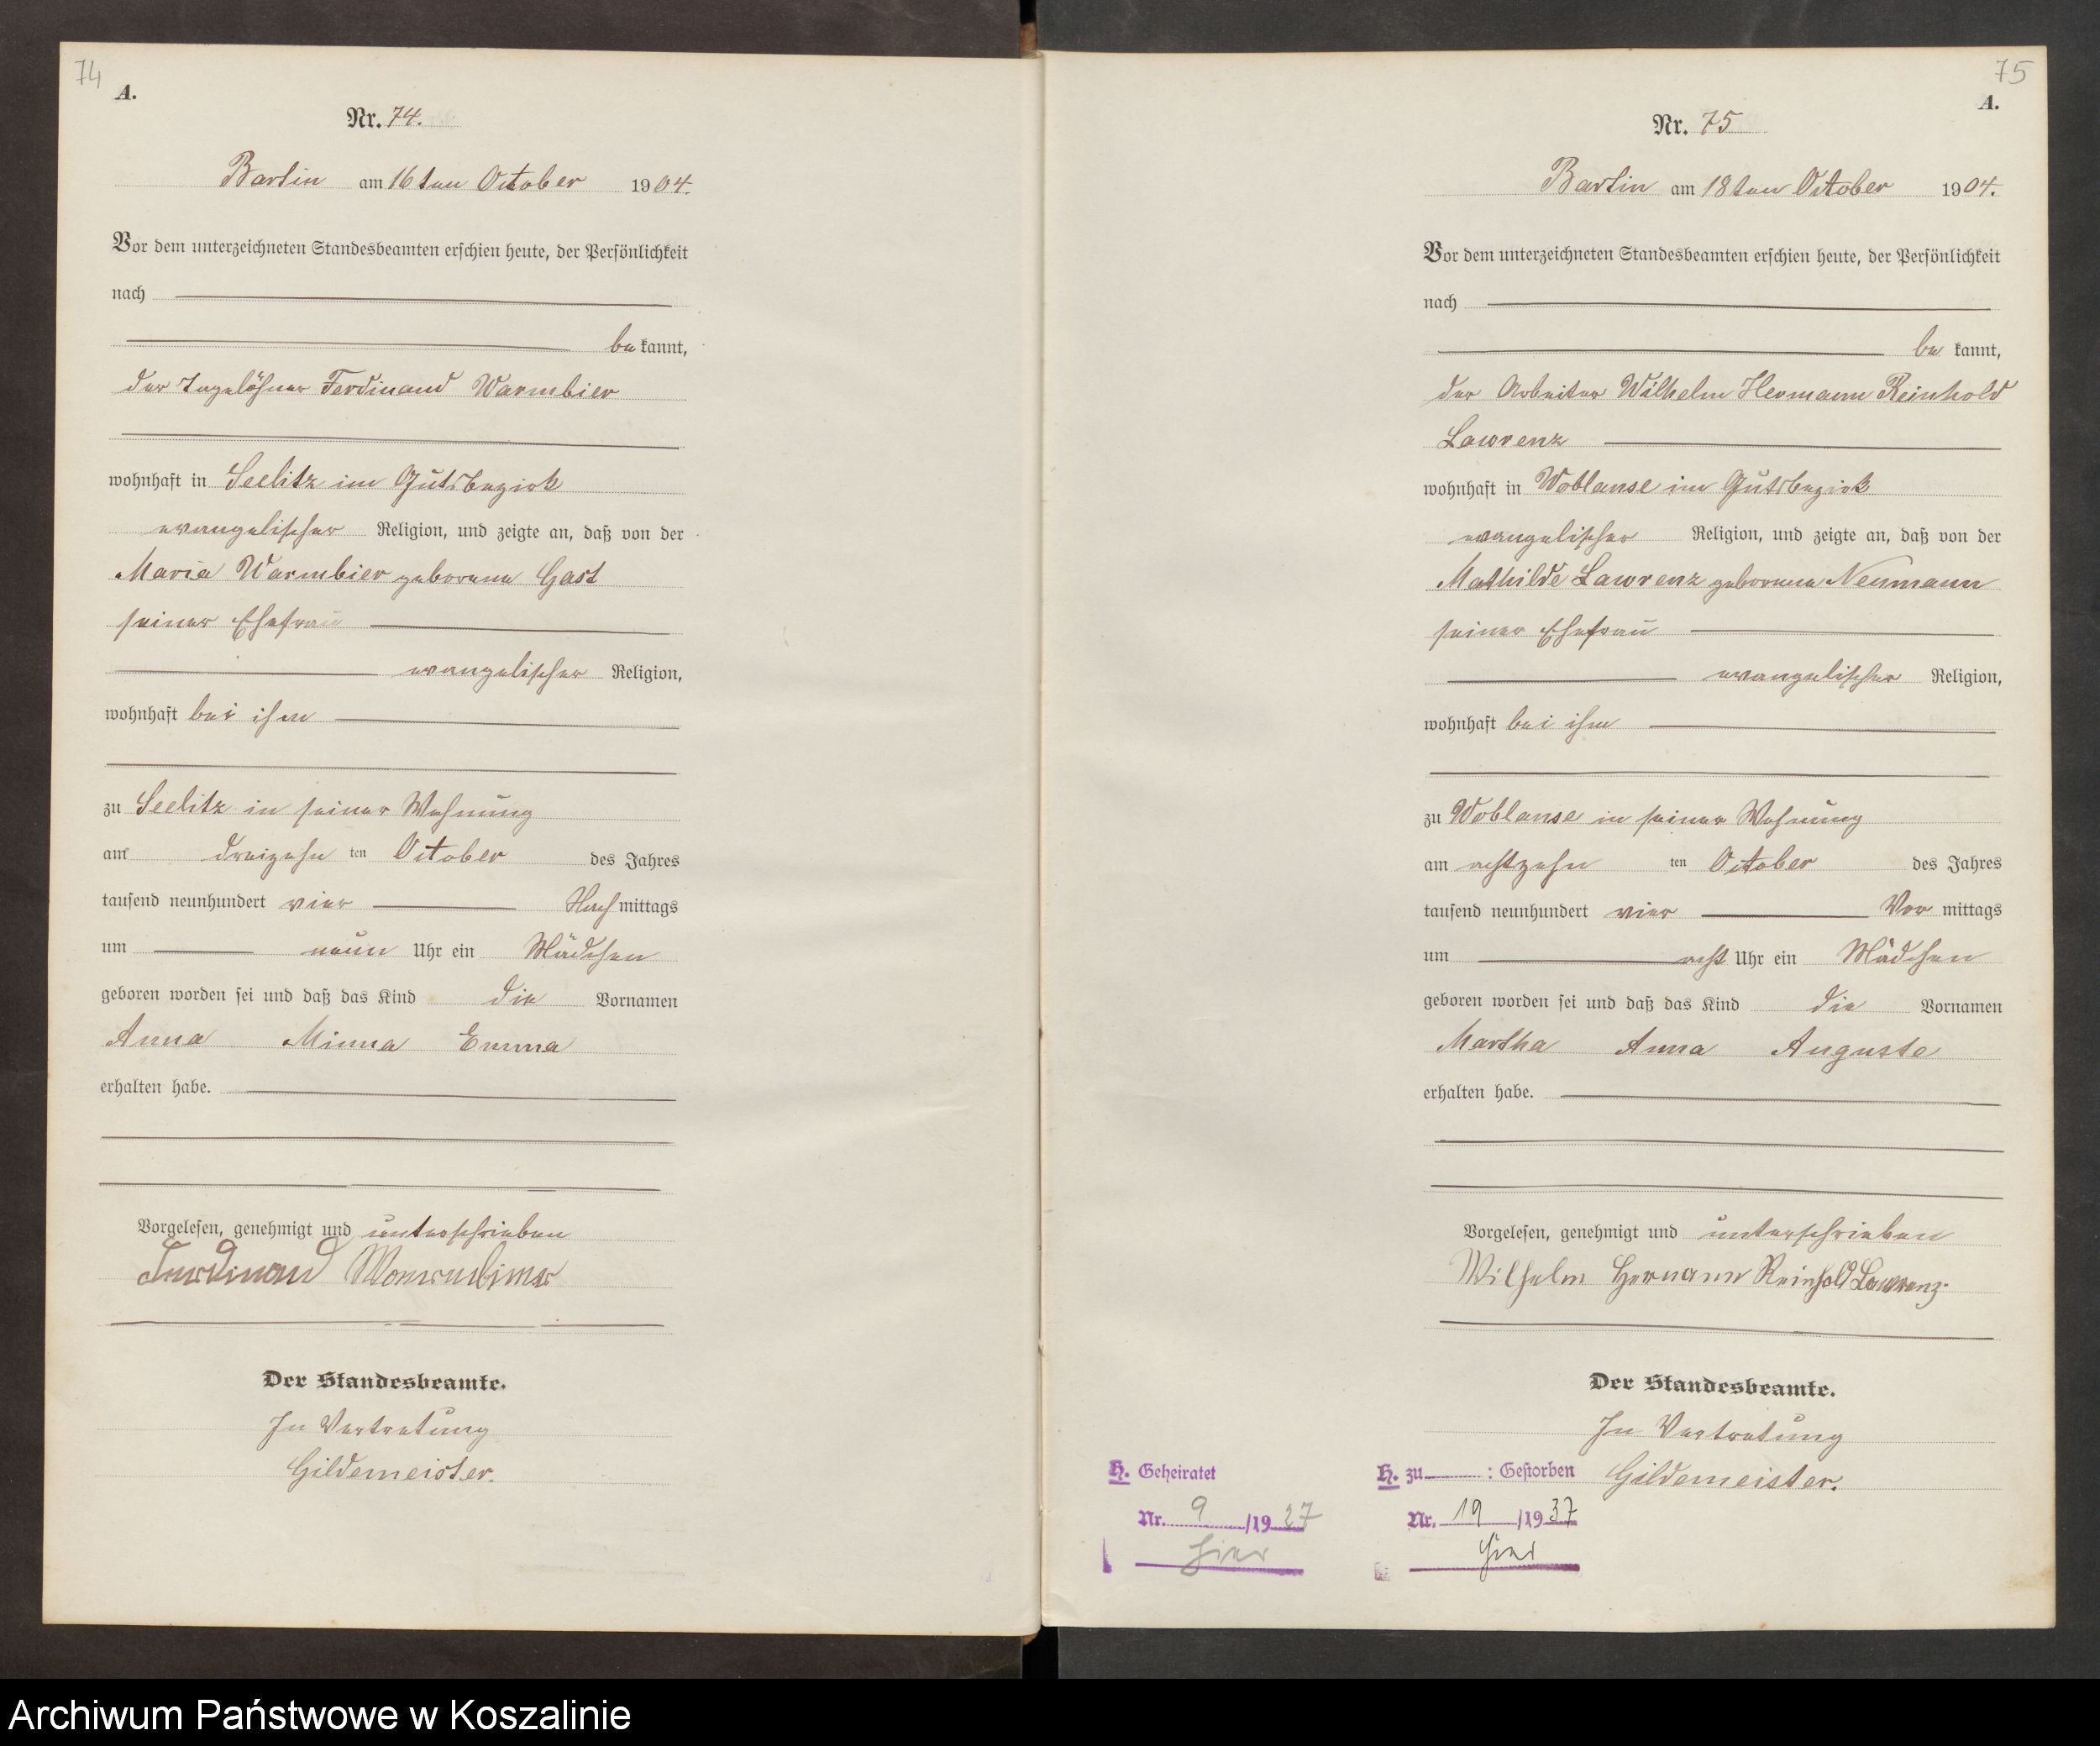 74
A.
Nr. 74.
Bartin am 16ten October 1904.
Vor dem unterzeichneten Standesbeamten erschien heute, der Persönlichkeit
nach
bekannt,
der Tagelöhner Ferdinand Warmbier
wohnhaft in Seelitz im Gutsbezirk
evangelischer Religion, und zeigte an, daß von der
Maria Warmbier geborene Gast
seiner Ehefrau
evangelischer Religion,
wohnhaft bei ihm
zu Seelitz in seiner Wohnung
am dreizehnten October des Jahres
tausend neunhundert vier Nachmittags
um neun Uhr ein Mädchen
geboren worden sei und daß das Kind die Vornamen
Anna Minna Emma
erhalten habe.
Vorgelesen, genehmigt und unterschrieben
Ferdinand Warmbier
Der Standesbeamte.
In Vertretung
Gildemeister.
75
A.
Nr. 75
Bartin am 18ten October 1904.
Vor dem unterzeichneten Standesbeamten erschien heute, der Persönlichkeit
nach
bekannt,
der Arbeiter Wilhelm Hermann Reinhold
Lawrenz
wohnhaft in Woblanse im Gutsbezirk
evangelischer Religion, und zeigte an, daß von der
Mathilde Lawrenz geborene Neumann
seiner Ehefrau
evangelischer Religion,
wohnhaft bei ihm
zu Woblanse in seiner Wohnung
am achtzehnten October des Jahres
tausend neunhundert vier Vormittags
um acht Uhr ein Mädchen
geboren worden sei und daß das Kind die Vornamen
Martha Anna Auguste
erhalten habe.
Vorgelesen, genehmigt und unterschrieben
Wilhelm Hermann Reinhold Lawrenz.
Der Standesbeamte.
In Vertretung
Gildemeister.
H. Geheiratet
Nr. 9/1927
hier
H. zu : Gestorben
Nr. 19/1937
hier
Archiwum Państwowe w Koszalinie